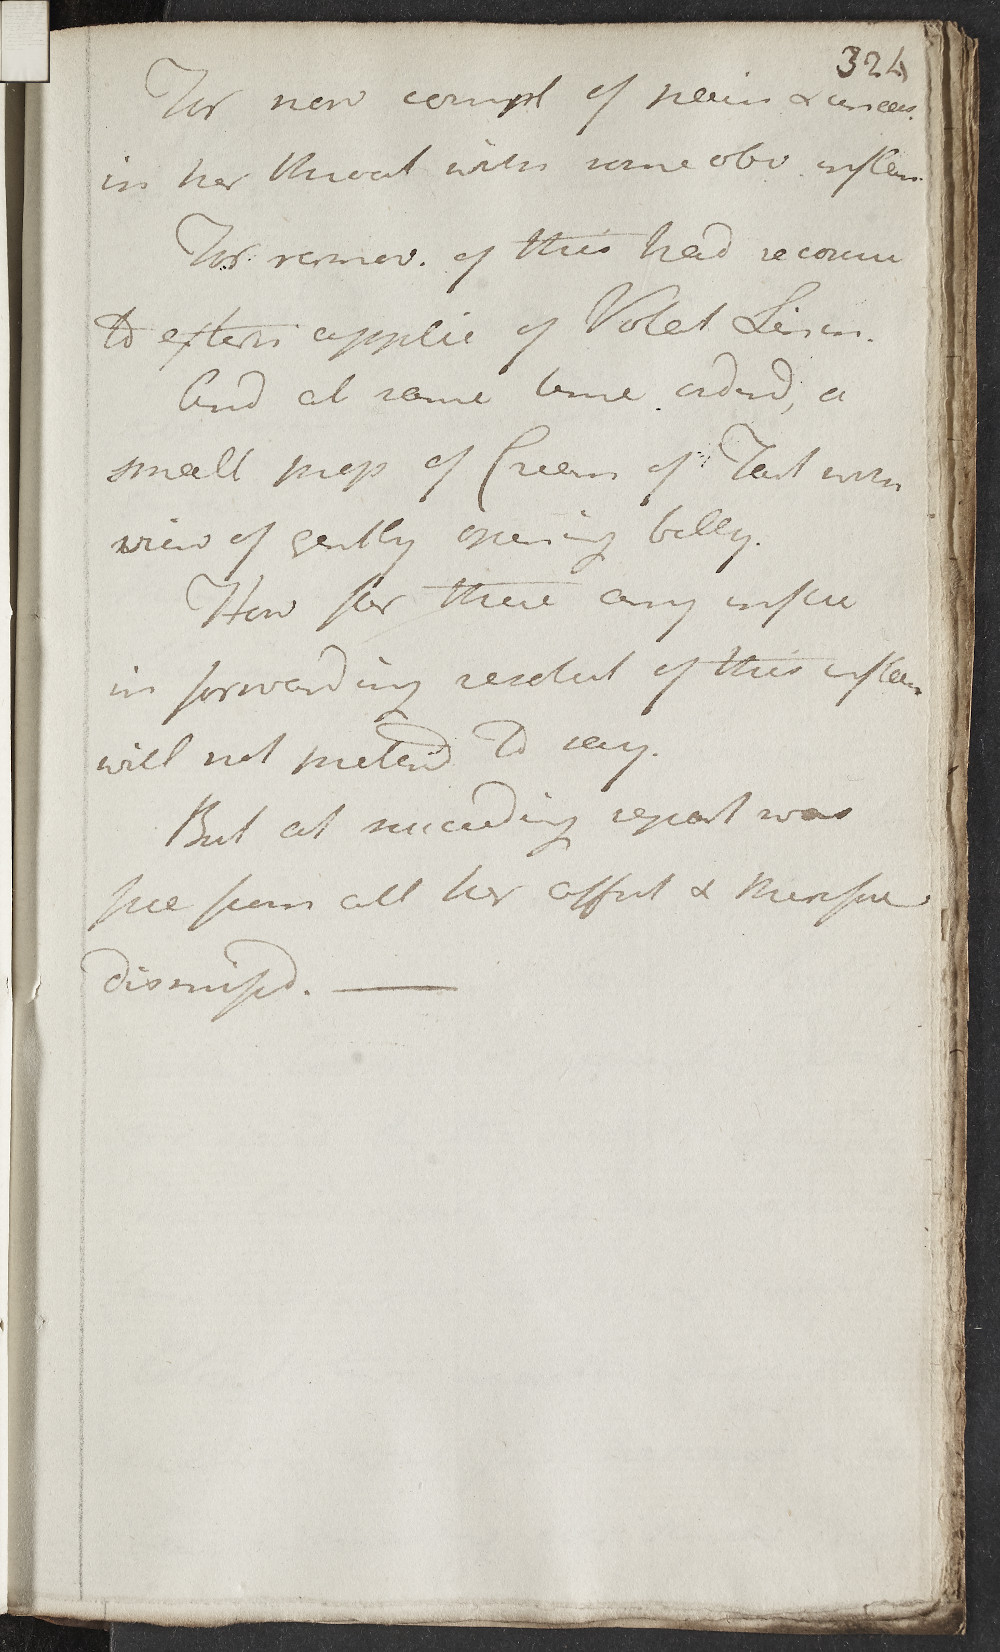 324
For now compt of pain & uneas.
in her throat with some obv. inflam.
For remov. of this had recour
to extern applic of Volat Linim.
And at same time ordrd, a
small prop of Cream of Tart with
view of gently opening belly.
How far these any influ
in forwarding resolut of this inflam
will not pretend to say.
But at succeeding report was
free from all her affect & therefore
dismissd.